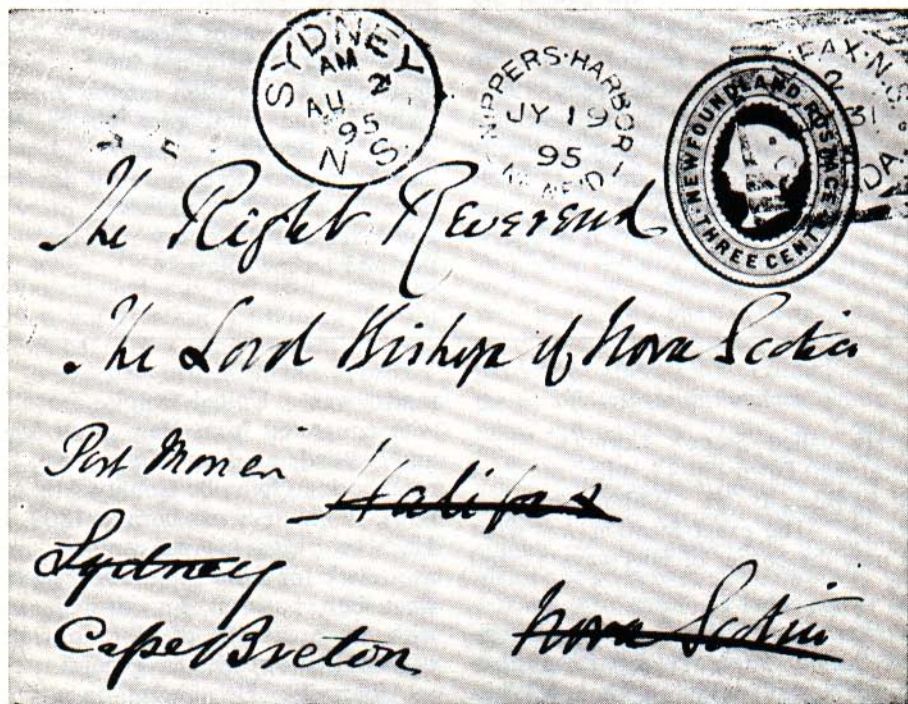 SYDNEY
AM
AU 2
95
N S.
NIPPERS·HARBOR
JY 19
95
NF'D
FAX·N.S.
2
31
DA
NEWFOUNDLAND POSTAGE
THREE CENTS
The Right Reverend
The Lord Bishop of Nova Scotia
Port Morien
Halifax
Sydney
Cape Breton
Nova Scotia